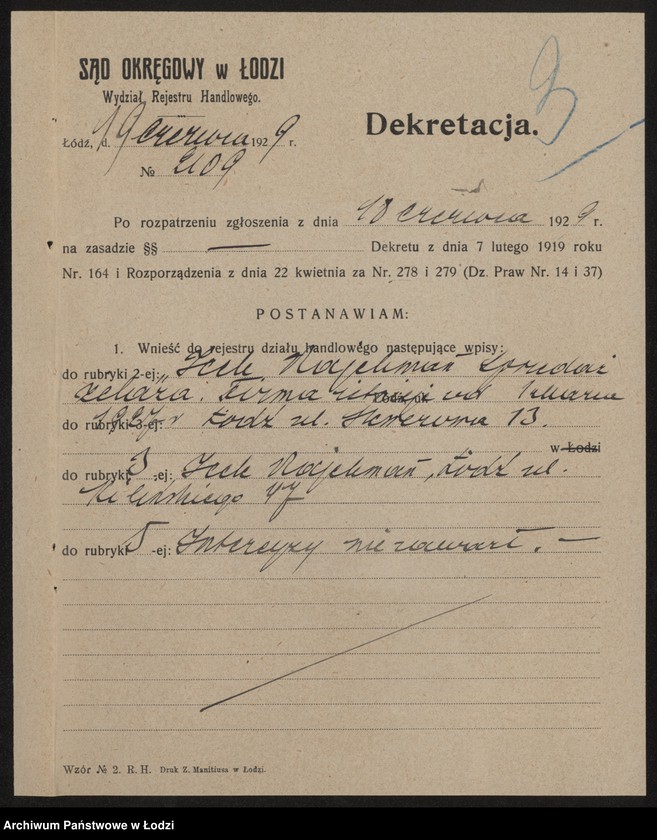 SĄD OKRĘGOWY w ŁODZI
Wydział Rejestru Handlowego.
Łódź, d. 19 czerwca 1929 r.
№ 2109
3
Dekretacja.
Po rozpatrzeniu zgłoszenia z dnia 18 czerwca 1929 r.
na zasadzie §§ — Dekretu z dnia 7 lutego 1919 roku
Nr. 164 i Rozporządzenia z dnia 22 kwietnia za Nr. 278 i 279 (Dz. Praw Nr. 14 i 37)
POSTANAWIAM:
1. Wnieść do rejestru działu handlowego następujące wpisy:
do rubryki 2-ej: Icek Najchman sprzedaż
żelaza. Firma istnieje od 1 marca
do rubryki 3-ej: 1927 r. Łódź ul. 13.
w Łodzi
do rubryki 3-ej: Icek Najchman, Łódź ul.
Kilińskiego 47
do rubryki 5-ej: Intercyzy nie zawarł. —
Wzór № 2. R. H. Druk Z. Manitiusa w Łodzi.
Archiwum Państwowe w Łodzi